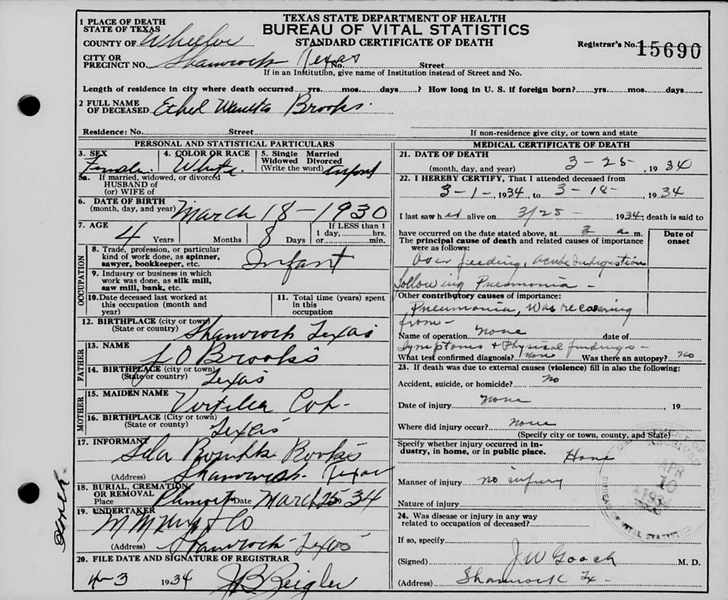 TEXAS STATE DEPARTMENT OF HEALTH
BUREAU OF VITAL STATISTICS
STANDARD CERTIFICATE OF DEATH
1 PLACE OF DEATH
STATE OF TEXAS
COUNTY OF Wheeler
CITY OR
PRECINCT NO. Shamrock Texas No. Street
Registrar's No. 15690
If in an Institution, give name of Institution instead of Street and No.
Length of residence in city where death occurred yrs. mos. days? How long in U. S. if foreign born? yrs. mos. days?
2 FULL NAME
OF DECEASED Ethel Brooks
Residence: No. Street
If non-residence give city, or town and state
PERSONAL AND STATISTICAL PARTICULARS
3. SEX
Female
4. COLOR OR RACE
White
5. Single Married
Widowed Divorced
(Write the word) infant
5a. If married, widowed, or divorced
HUSBAND OF
(or) WIFE of
6. DATE OF BIRTH
(month, day, and year) March 18 - 1930
7. AGE
4 Years Months 8 Days
If LESS than 1
1 day, hrs.
or min.
OCCUPATION
8. Trade, profession, or particular
kind of work done, as spinner,
sawyer, bookkeeper, etc. Infant
9. Industry or business in which
work was done, as silk mill,
saw mill, bank, etc.
10. Date deceased last worked at
this occupation (month and
year)
11. Total time (years)
spent in this
occupation
12. BIRTHPLACE (city or town)
(State or country) Shamrock Texas
FATHER
13. NAME
L O Brooks
14. BIRTHPLACE (city or town)
(State or country) Texas
MOTHER
15. MAIDEN NAME
16. BIRTHPLACE (city or town)
(State or country) Texas
17. INFORMANT
(Address) Shamrock Texas
18. BURIAL, CREMATION
OR REMOVAL
Place Date March 34
19. UNDERTAKER
& Co
(Address) Shamrock Texas
20. FILE DATE AND SIGNATURE OF REGISTRAR
4-3 1934 J B Zeigler
MEDICAL CERTIFICATE OF DEATH
21. DATE OF DEATH
(month, day, and year) 3-25-, 1934
22. I HEREBY CERTIFY, That I attended deceased from
3-1-, 1934, to 3-18-, 1934
I last saw h er alive on 3/25-, 1934, death is said to
have occurred on the date stated above, at 2 a m.
The principal cause of death and related causes of importance
were as follows:
Date of
onset
Over feeding, acute indigestion
following Pneumonia -
Other contributory causes of importance:
Pneumonia, was recovering
from -
Name of operation none date of
Symptoms & Physical findings -
What test confirmed diagnosis? none Was there an autopsy? No
23. If death was due to external causes (violence) fill in also the following:
Accident, suicide, or homicide? No
Date of injury none 19
Where did injury occur? none
(Specify city or town, county, and State)
Specify whether injury occurred in in-
dustry, in home, or in public place. Home
Manner of injury no injury
Nature of injury
24. Was disease or injury in any way
related to occupation of deceased?
If so, specify
(Signed) J W Gooch M. D.
(Address) Shamrock Tx.
APR
10